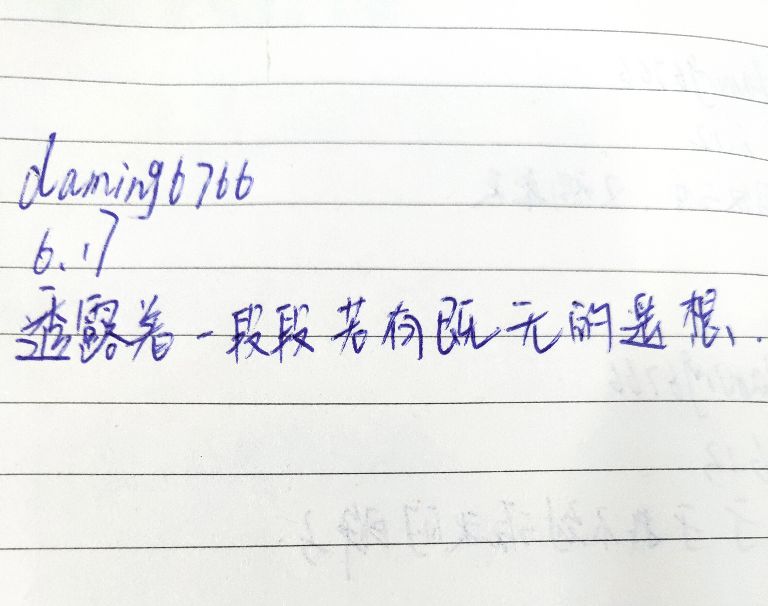 daming6766
6.17
透露着一段段若有既无的是想、.